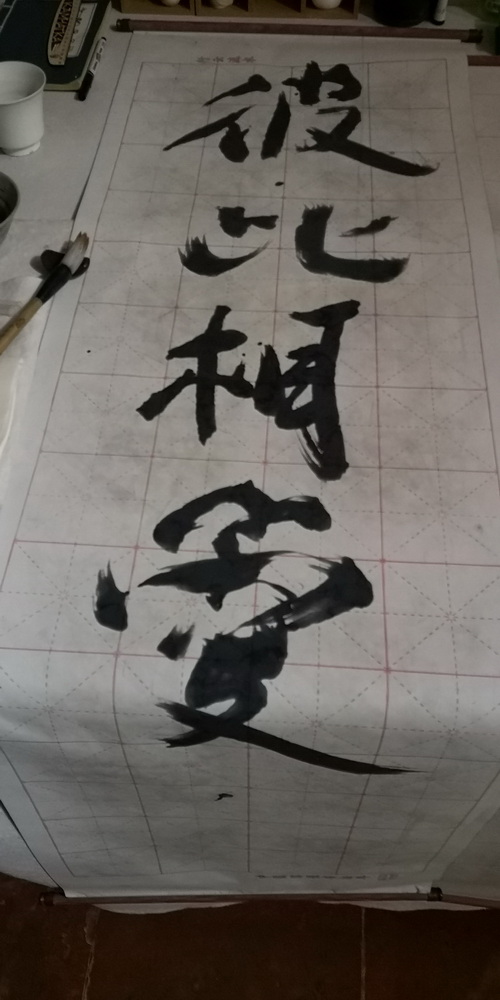 彼此相爱